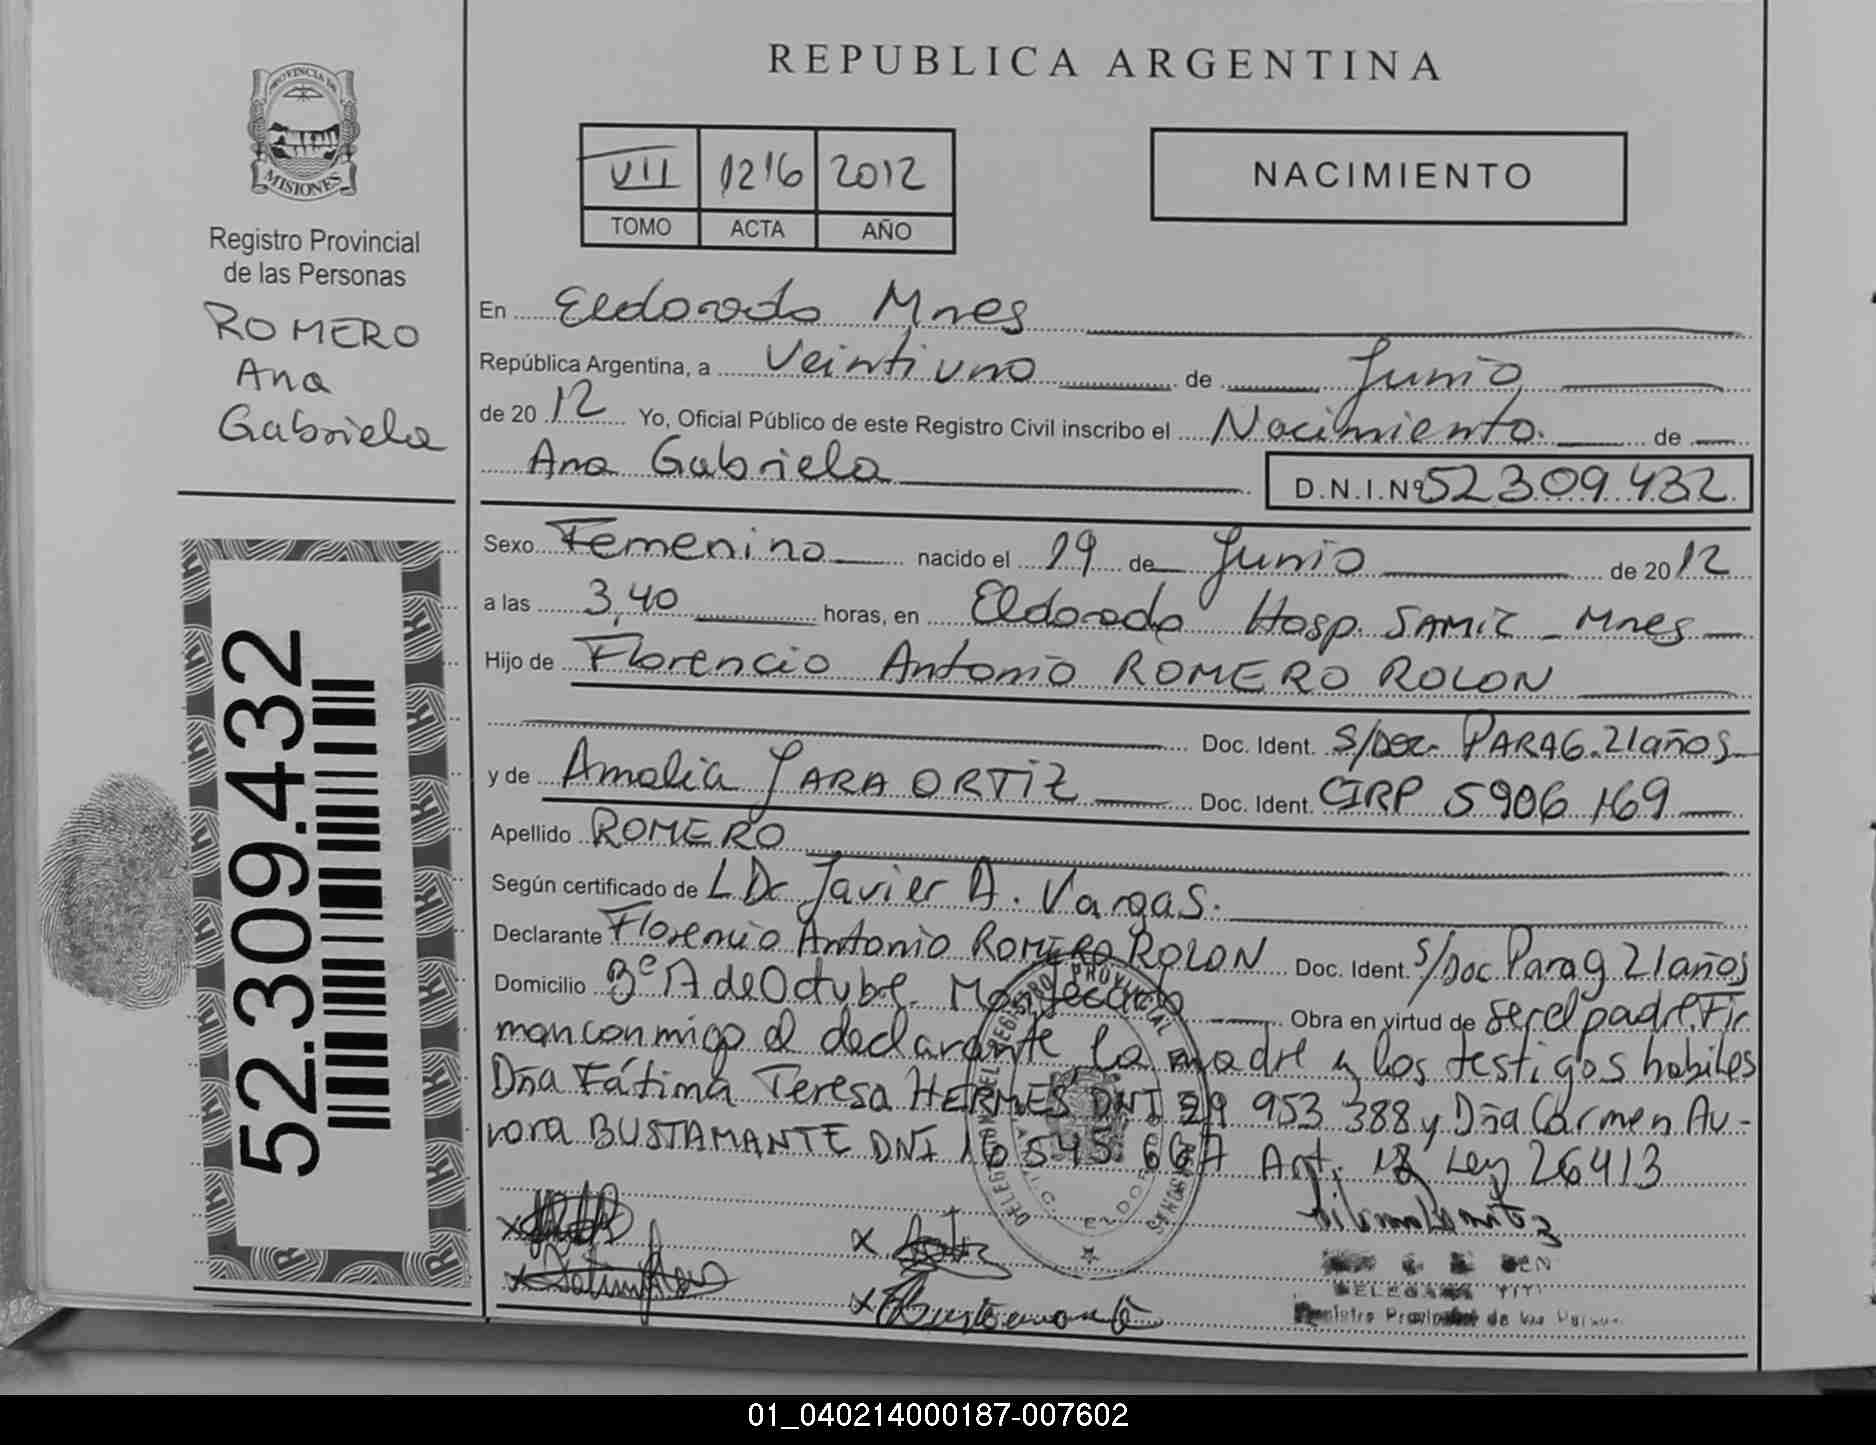 REPUBLICA ARGENTINA
PROVINCIA DE
MISIONES
Registro Provincial
de las Personas
ROMERO
Ana
Gabriela
VII 1216 2012
TOMO ACTA AÑO
NACIMIENTO
En Eldorado Mnes
República Argentina, a Veintiuno de Junio
de 2012 Yo, Oficial Público de este Registro Civil inscribo el Nacimiento de
Ana Gabriela D.N.I.Nº 52.309.432
Sexo Femenino nacido el 19 de Junio de 2012
a las 3,40 horas, en Eldorado Hosp. SAMIC - Mnes
Hijo de Florencio Antonio ROMERO ROLON
Doc. Ident. s/Doc. PARAG. 21 años
y de Amalia JARA ORTIZ Doc. Ident. CIRP 5906169
Apellido ROMERO
Según certificado de LDr Javier A. Vargas.
Declarante Florencio Antonio ROMERO ROLON Doc. Ident. s/Doc Parag 21 años
Domicilio Bº 17 de Octubre. Montecarlo Obra en virtud de ser el padre. Fir
man conmigo el declarante la madre y los testigos habiles
Dña Fátima Teresa HERMES DNI 29 953 388 y Dña Carmen Au-
rora BUSTAMANTE DNI 16 545 667 Art. Ley 26413
52.309.432
DELEG REGISTRO PROVINCIAL
ELDORADO
Bustamante
Registro Provincial de las
01_040214000187-007602